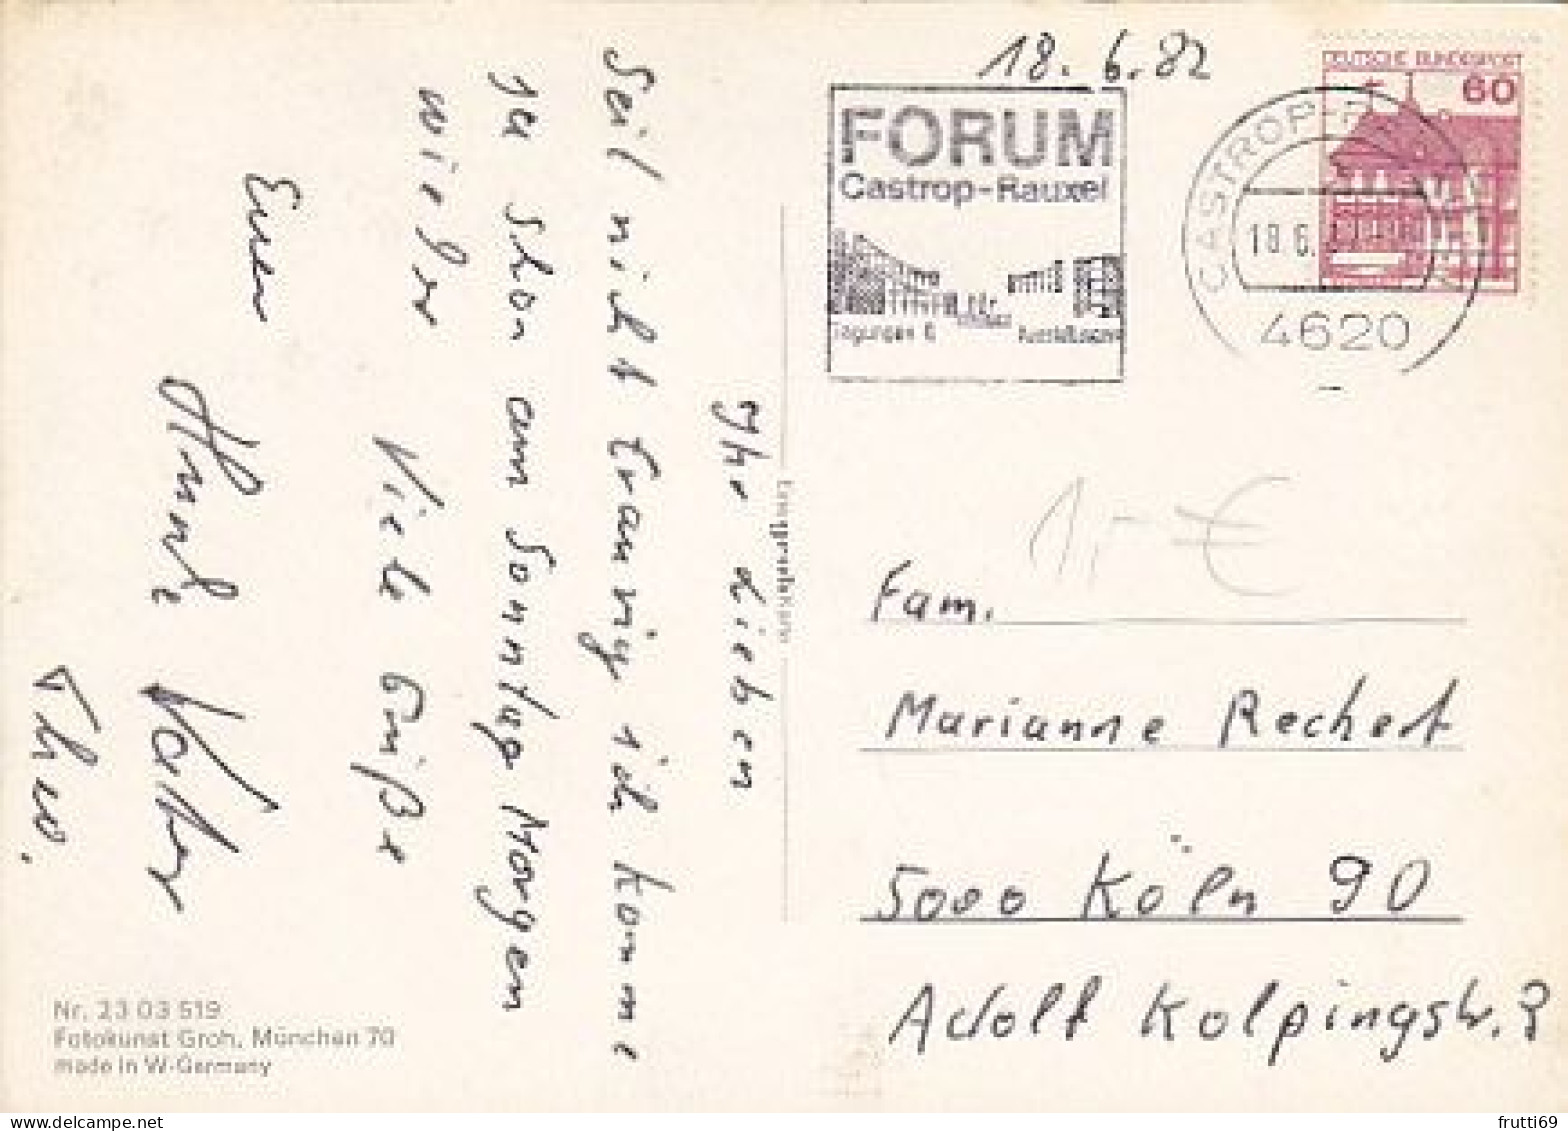 18.6.82
FORUM
Castrop-Rauxel
Tagungen &
DEUTSCHE BUNDESPOST
60
CASTROP-
18.6.
4620
Ihr Lieben
Seid nicht traurig ich komme
ja schon am Sonntag Morgen
wieder
Viele Grüße
Euer
Theo.
1,- €
Fam.
Marianne Rechert
5000 Köln 90
Adolf Kolpingstr. 3
Nr. 23 03 519
Fotokunst Groh, München 70
made in W-Germany
frutti69